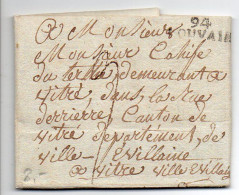 94
LOUVAIN
a Monsieur
Monsieur Cahise
du tertre demeurant a
vitré, dans la Rue
derriere, Canton de
vitré departement de
ville-Evillaine
a vitré ville Evillai
2.-